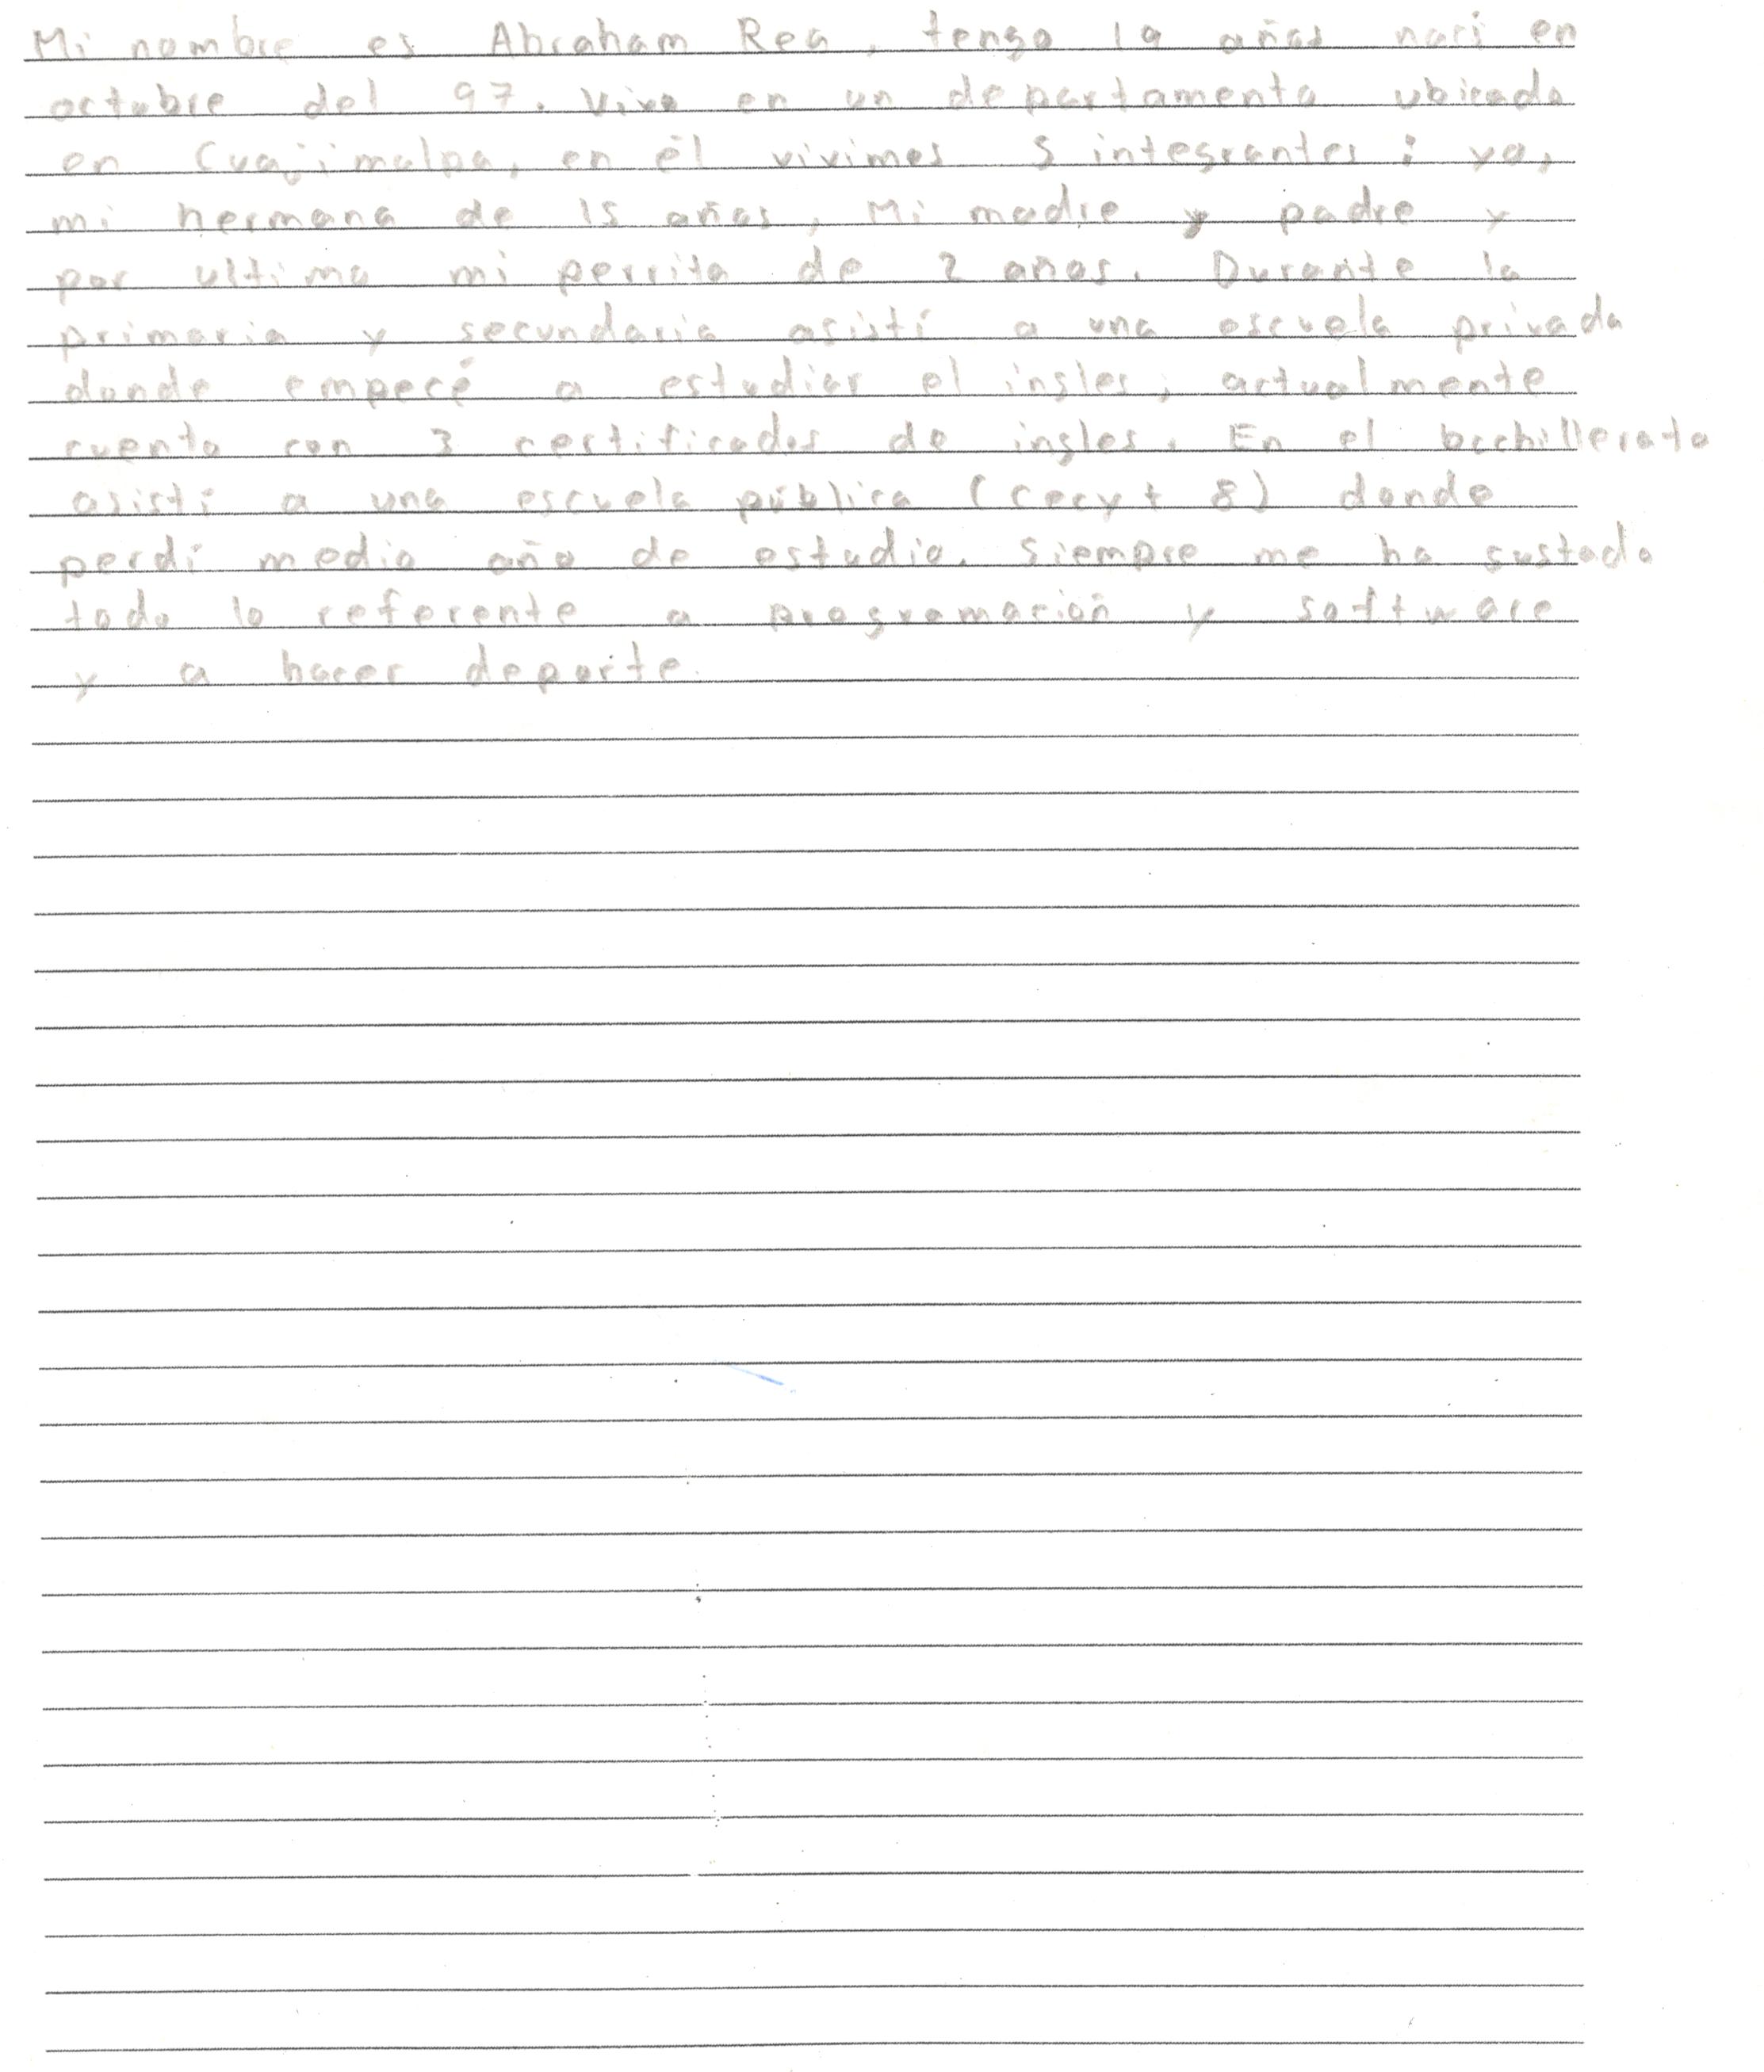 Mi nombre es Abraham Rea, tengo 19 años nací en
octubre del 97. Vivo en un departamento ubicado
en Cuajimalpa, en él vivimos 5 integrantes: yo,
mi hermana de 15 años, Mi madre y padre y
por ultimo mi perrita de 2 años. Durante la
primaria y secundaria asistí a una escuela privada
donde empecé a estudiar el ingles, actualmente
cuento con 3 certificados de ingles. En el bachillerato
asistí a una escuela pública (cecyt 8) donde
perdí medio año de estudio. Siempre me ha gustado
todo lo referente a programación y software
y a hacer deporte.